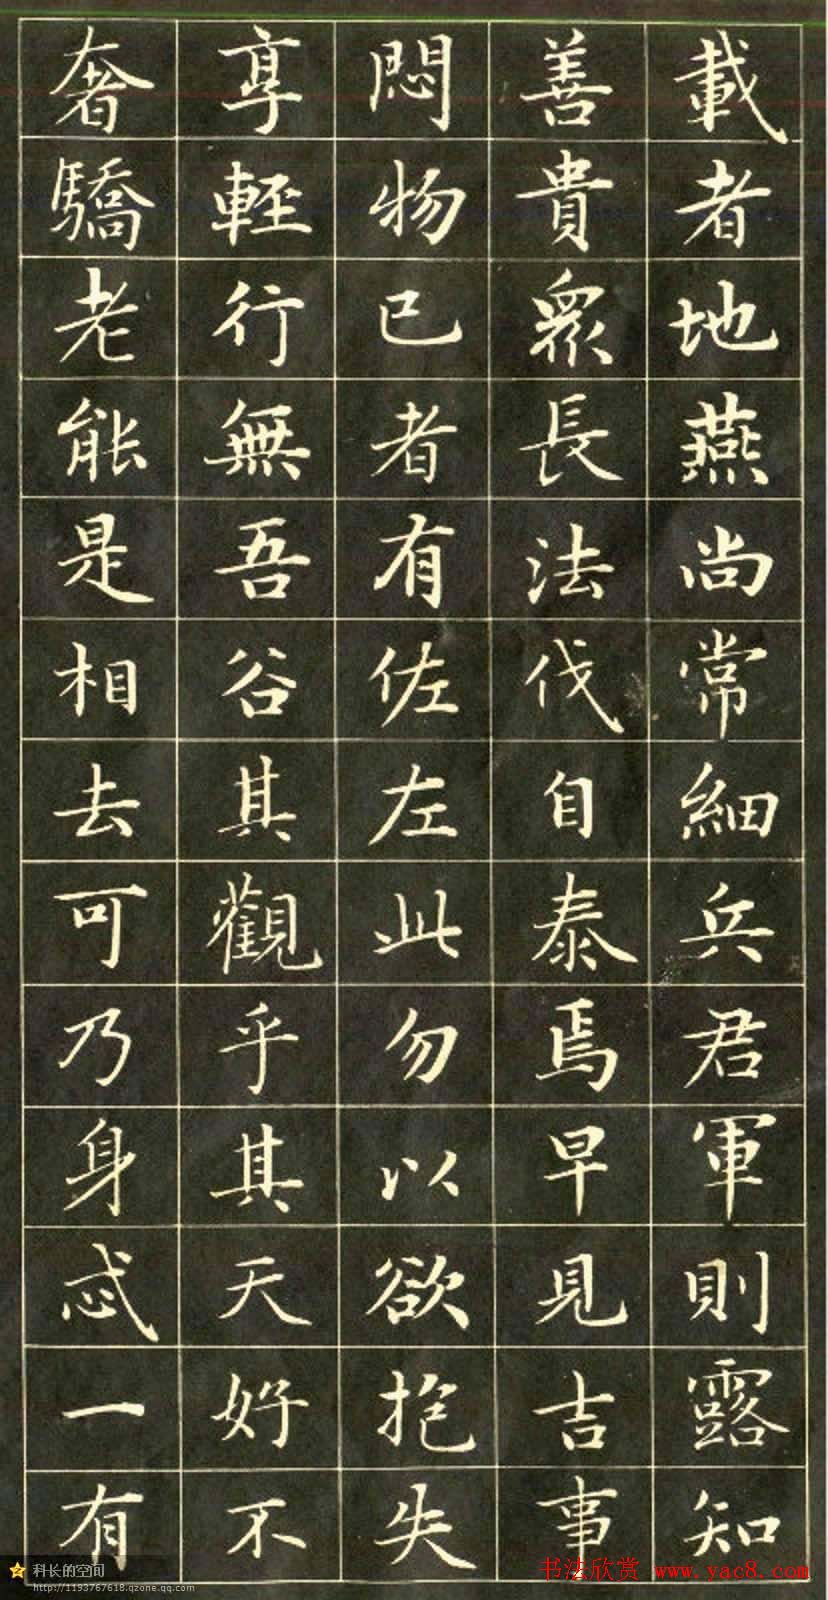 載者地燕尚常細兵君軍則露知
善貴衆長法伐自泰焉早見吉事
悶物已者有佐左此勿以欲抱失
享輕行無吾谷其觀乎其天好不
奢驕老能是相去可乃身忒一有
科长的空间
http://1193767618.qzone.qq.com
书法欣赏 www.yac8.com